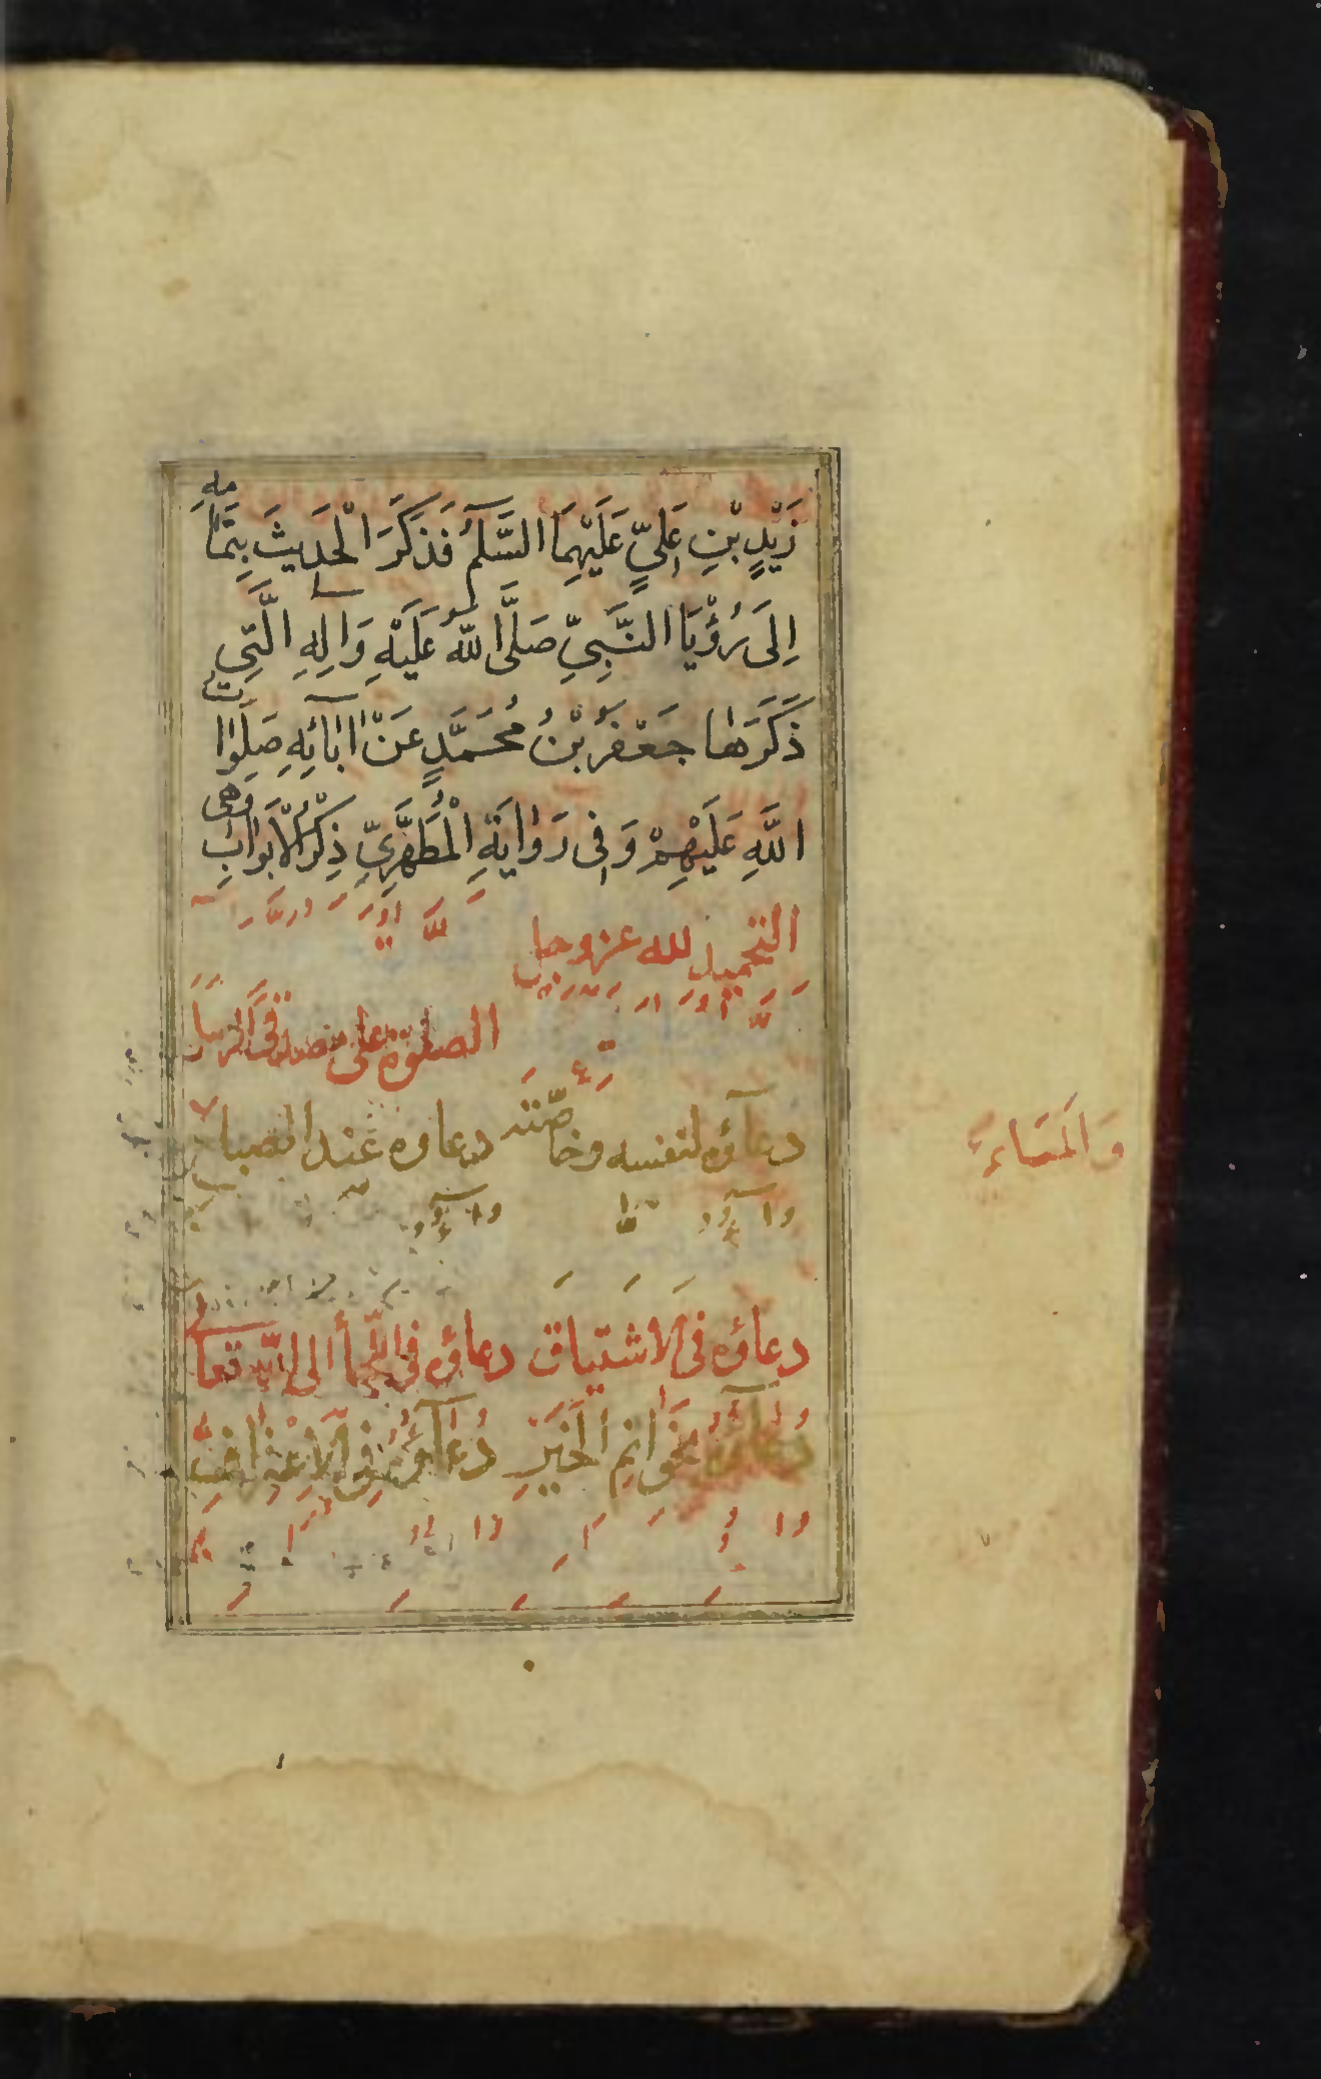 زَيْدِ بْنِ عَلِيٍّ عَلَيْهِمَا السَّلَمُ فَذَكَرَ الْحَدِيثَ بِتَمَامِهِ
اِلَى رُؤْيَا النَّبِيِّ صَلَّى اللهُ عَلَيْهِ وَالِهِ الَّتِي
ذَكَرَهَا جَعْفَرُ بْنُ مُحَمَّدٍ عَنْ اٰبَائِهِ صَلَوَاتُ
اللَّهِ عَلَيْهِمْ وَفِي رَوَايَةِ الْمُطَهَّرِيِّ ذِكْرُ الْاَبْوَابِ وَهِيَ
التحميد لله عز وجل
الصلوة على
دعاؤه لنفسه وخاصته دعاوه عند الصباح
وَالْمَسَاءِ
دعاؤه في الاشتياق دعاؤه في اللجأ الى الله تعالى
دُعَاؤُهُ بِخَوَاتِمِ الْخَيْرِ دُعَاؤُهُ فِي الْاِعْتِرَافِ